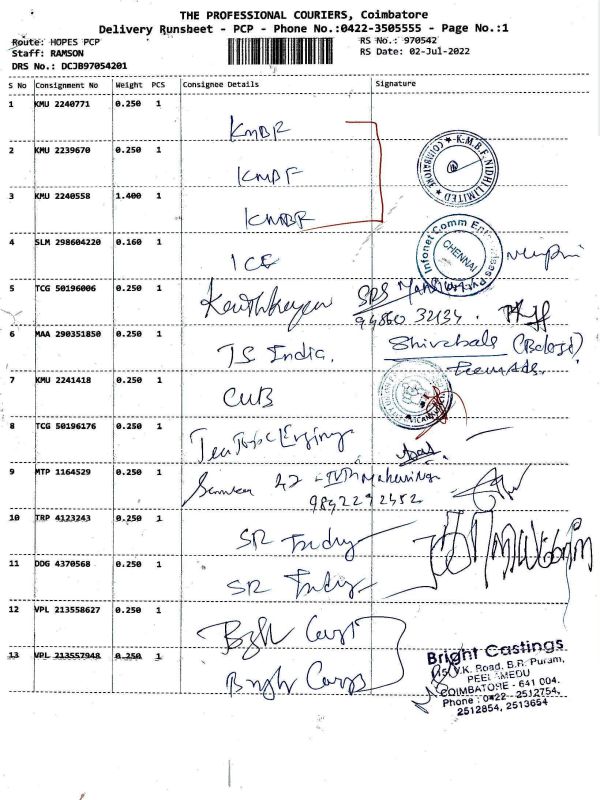 THE PROFESSIONAL COURIERS, Coimbatore
Delivery Runsheet - PCP - Phone No.:0422-3505555 - Page No.:1
Route: HOPES PCP
RS No.: 970542
Staff: RAMSON
RS Date: 02-Jul-2022
DRS No.: DCJB97054201
S No Consignment No Weight PCS Consignee Details Signature
1 KMU 2240771 0.250 1
KMBF
2 KMU 2239670 0.250 1
KMBF
K.M.B.F. NIDHI LIMITED ★ COIMBATORE ★
3 KMU 2240558 1.400 1
KMBF
4 SLM 298604220 0.160 1
ICE
Infonet Comm Enterprises Pvt. Ltd.
CHENNAI
5 TCG 50196006 0.250 1
SRS
94860 32134
6 MAA 290351850 0.250 1
TS India.
Shivabala (Balaji)
7 KMU 2241418 0.250 1
CUB
8 TCG 50196176 0.250 1
9 MTP 1164529 0.250 1
9842292452
10 TRP 4123243 0.250 1
SR Indry
11 DDG 4370568 0.250 1
SR Indry
12 VPL 213558627 0.250 1
Brgh Cast
13 VPL 213557948 0.250 1
Brgh Carps
Bright Castings
V.K. Road, B.R. Puram,
PEELAMEDU
COIMBATORE - 641 004.
Phone : 0422 - 2512754,
2512854, 2513654